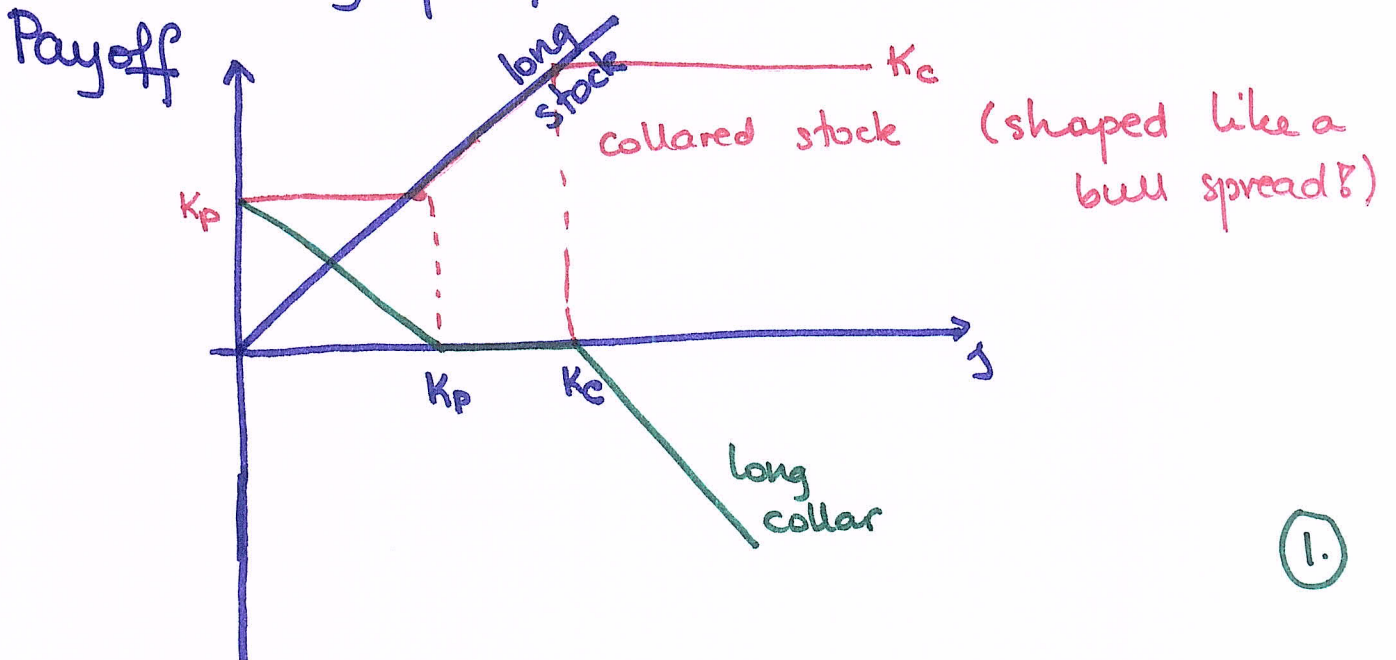 Payoff
long
stock
Kc
collared stock (shaped like a
bull spread?)
Kp
Kp
Kc
s
long
collar
1.